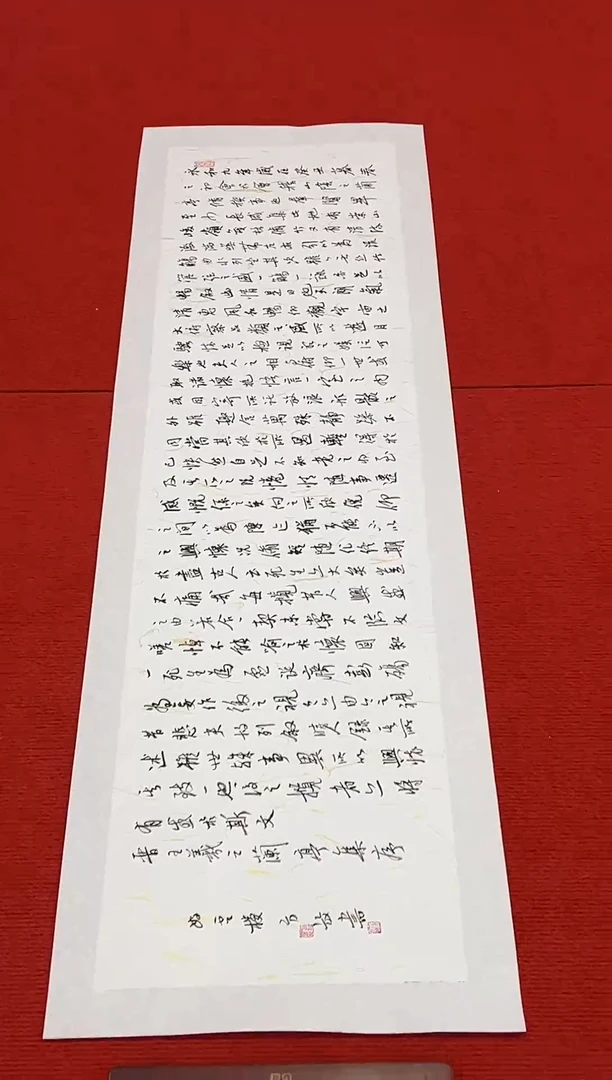 永和九年歲在癸丑暮春
之初會於會稽山陰之蘭
亭脩稧事也群賢畢
至少長咸集此地有崇山
峻嶺茂林脩竹又有清流
激湍暎帶左右引以為流
觴曲水列坐其次雖無絲竹
管弦之盛一觴一詠亦足以
暢敘幽情是日也天朗氣
清惠風和暢仰觀宇宙之
大俯察品類之盛所以遊目
騁懷足以極視聽之娛信可
樂也夫人之相與俯仰一世或
取諸懷抱悟言一室之內
或因寄所託放浪形骸之
外雖趣舍萬殊靜躁不
同當其欣於所遇暫得於
己快然自足不知老之將至
及其所之既惓情隨事遷
感慨係之矣向之所欣俛仰
之間以為陳迹猶不能不以
之興懷況脩短隨化終期
於盡古人云死生亦大矣豈
不痛哉每攬昔人興感
之由若合一契未嘗不臨文
嗟悼不能喻之於懷固知
一死生為虛誕齊彭殤
為妄作後之視今亦由今之視
昔悲夫故列敘時人錄其所
述雖世殊事異所以興懷
其致一也後之攬者亦將
有感於斯文
晉王羲之蘭亭集序